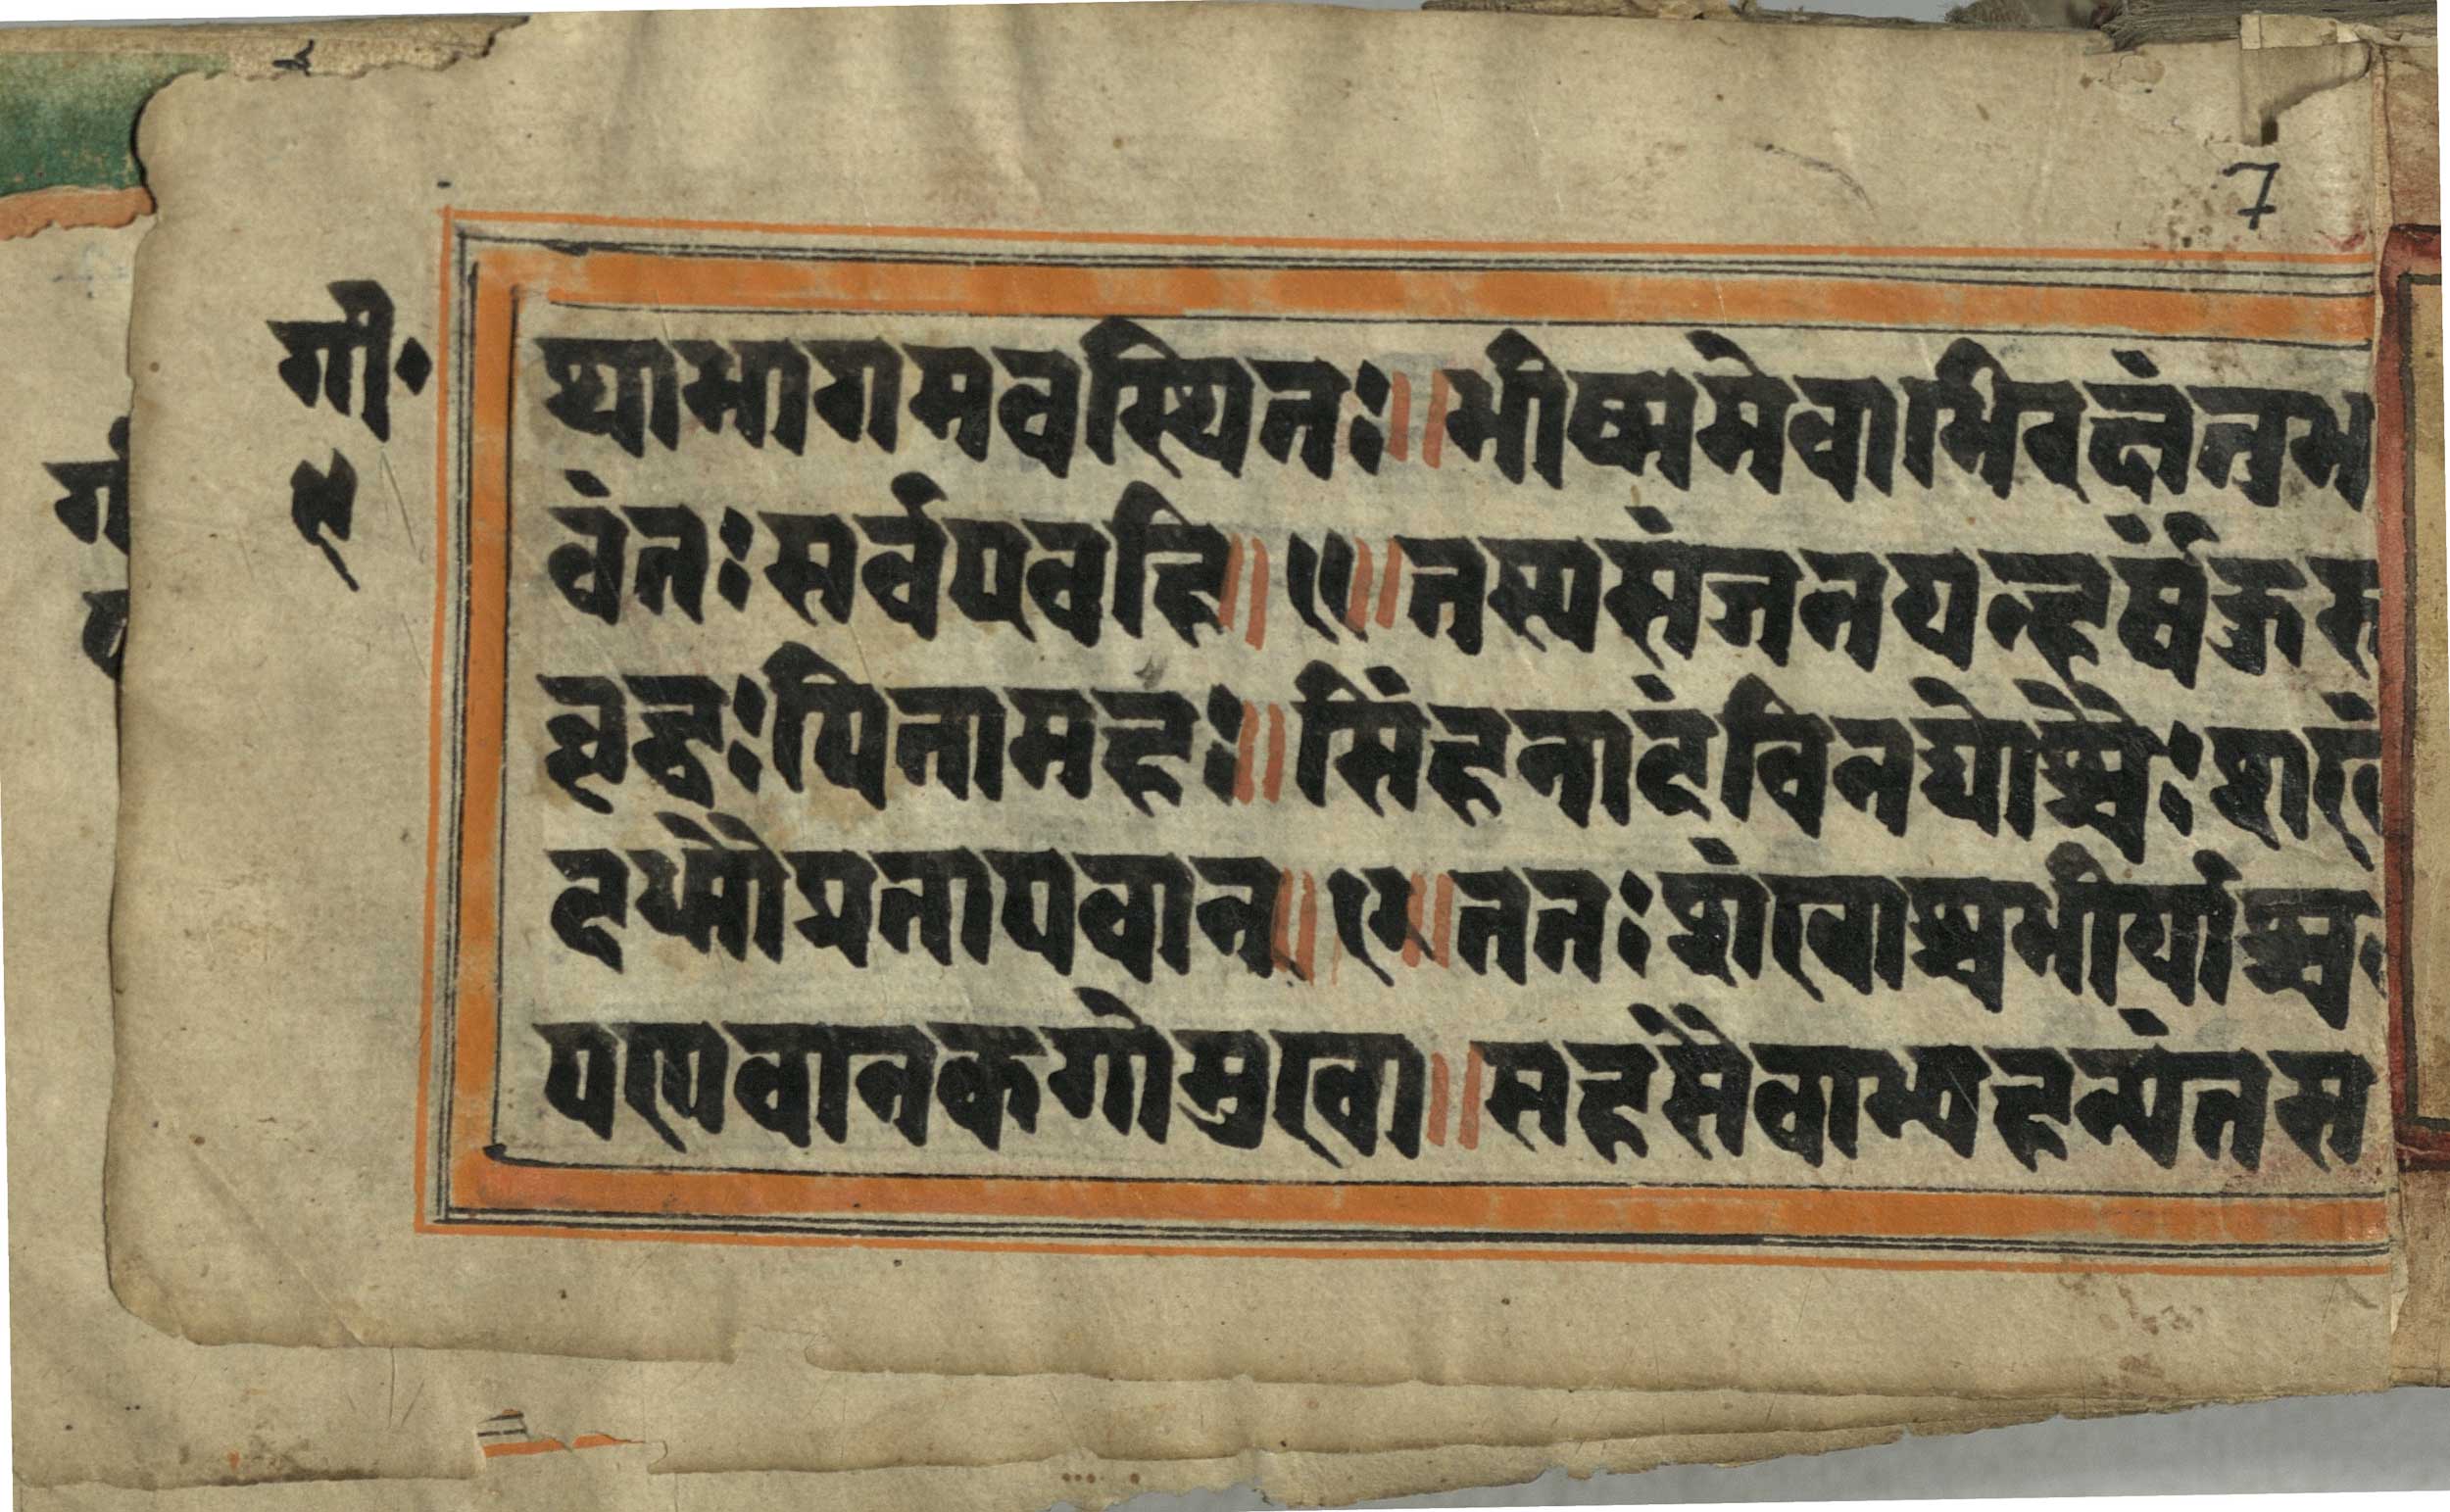 7
गी॰
थाभागमवस्थितः॥भीष्ममेवाभिरक्षंतुभ
वंतः सर्वएवहि॥११॥तस्यसंजनयन्हर्षंकुरु
वृद्धः पितामहः॥सिंहनादंविनद्योच्चैः शंखं
दध्मौप्रतापवान्॥१२॥ततः शंखाश्चभेर्यश्च
पणवानकगोमुखा॥सहसैवाभ्यहन्यंतस